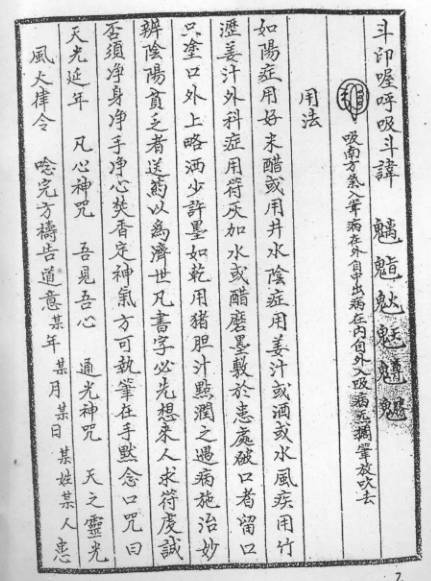 斗印喔呼吸斗諱 魒魓魀魊魕魓
吸南方炁入筆病在外自中出病在内自外入吸病炁擱筆放吹去
用法
如陽症用好米醋或用井水陰症用姜汁或酒或水風疾用竹
瀝姜汁外科症用符灰加水或醋磨墨敷於患處破口者留口
只塗口外上略洒少許墨如乾用猪胆汁點潤之遇病施治妙
辨陰陽貧乏者送葯以為濟世凡書字必先想來人求符虔誠
否須净身净手净心焚香定神氣方可執筆在手默念口咒曰
天光延年 凡心神咒 吾見吾心 通光神咒 天之靈光
風火律令 唸完方禱告道意某年 某月某日 某姓某人患